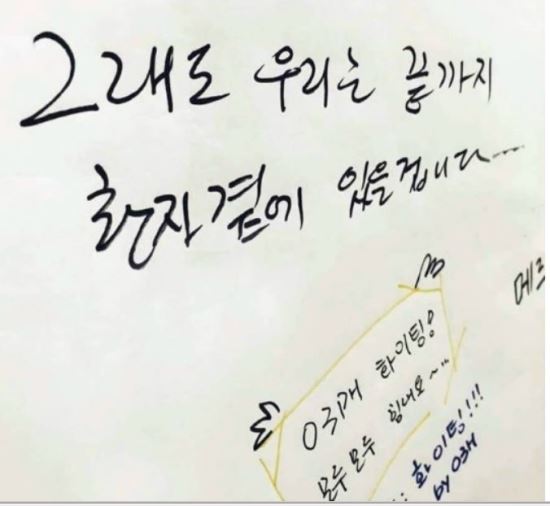 그래도 우리는 끝까지
환자곁에 있을겁니다...
메르
03개 화이팅!
모두모두 힘내요~
화이팅!!!
by 03개